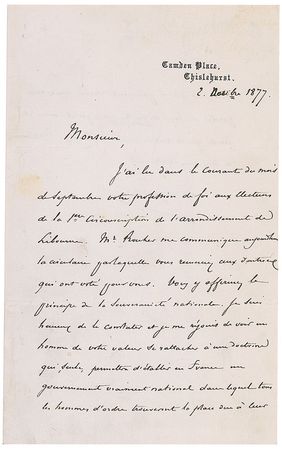 Camden Place,
Chislehurst.
2. Novbre 1877.
Monsieur,
J'ai lu dans le courant du mois
de Septembre votre profession de foi aux électeurs
de la 1ère Circonscription de l'arrondissement de
Libourne. Mr. me communique aujourd'hui
la circulaire par laquelle vous remerciez aux d'
qui ont voté pour vous. Vous y affirmez le
principe de la Souveraineté nationale. Je suis
heureux de le constater et je me réjouis de voir un
homme de votre valeur se rattacher à une doctrine
qui, seule, permettra d'établir en France un
gouvernement vraiment national dans lequel tous
les hommes d'ordre trouveront la place due à leur